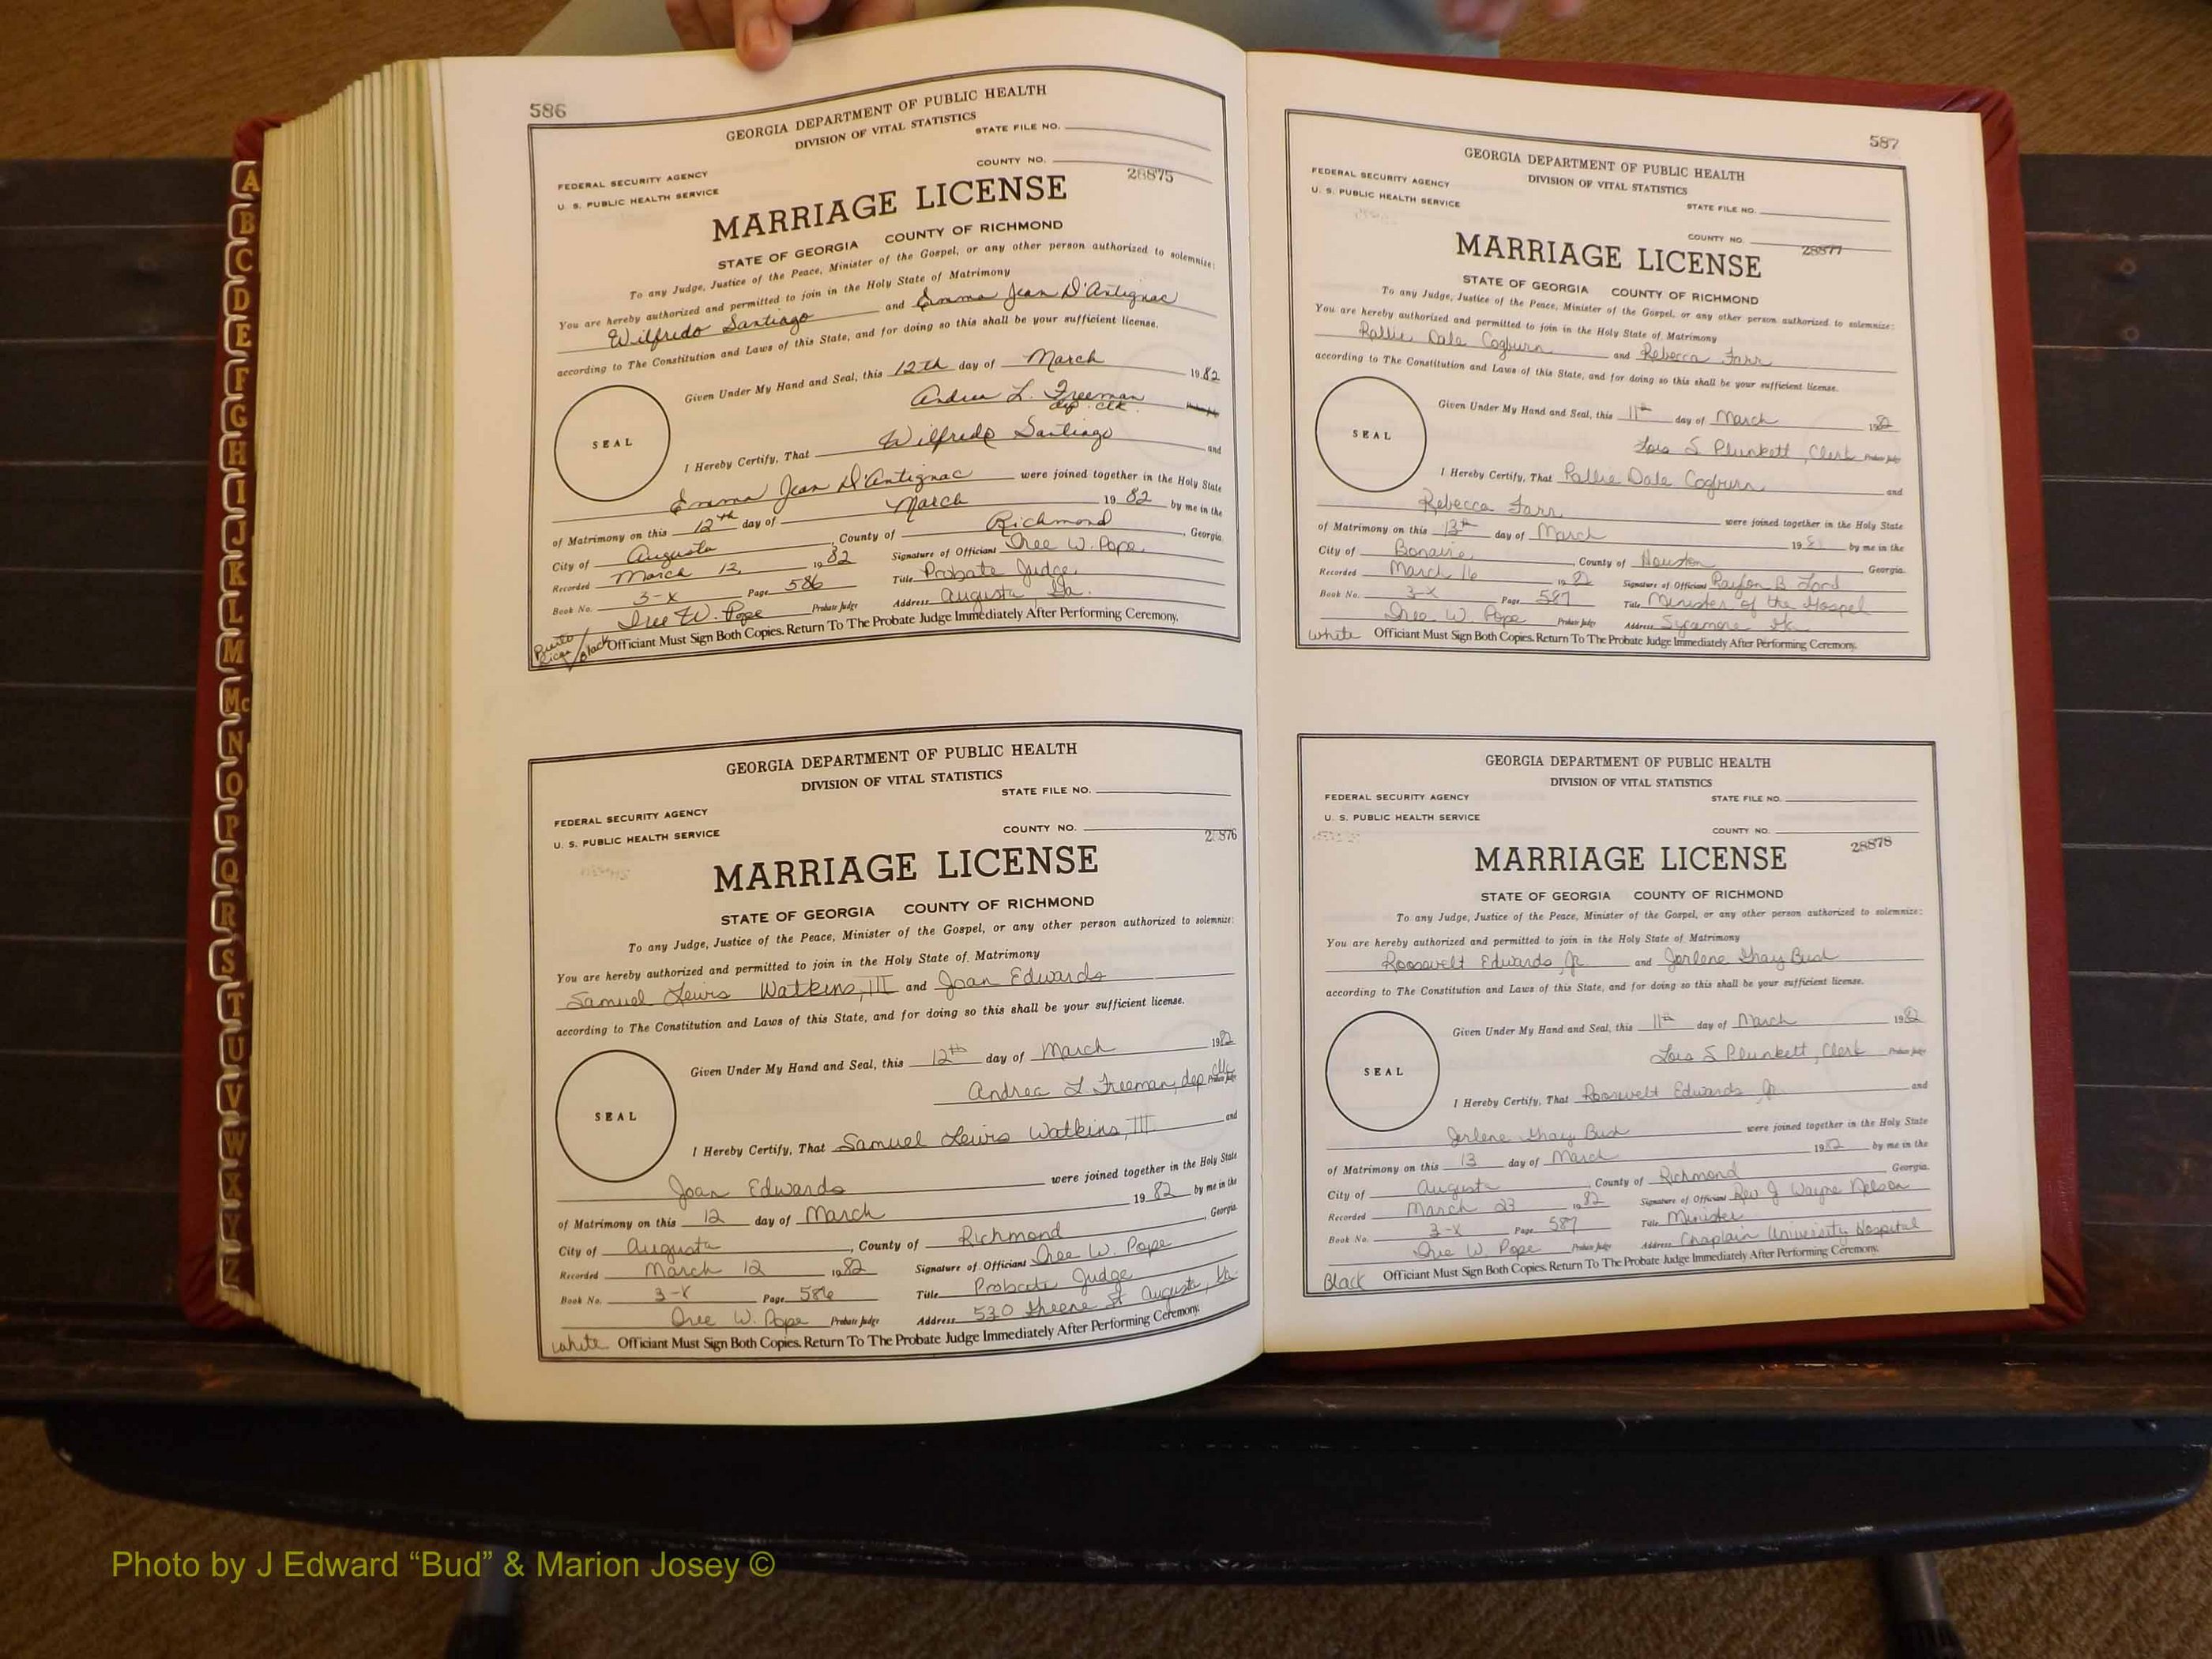 586
GEORGIA DEPARTMENT OF PUBLIC HEALTH
DIVISION OF VITAL STATISTICS
STATE FILE NO.
COUNTY NO. 28875
FEDERAL SECURITY AGENCY
U. S. PUBLIC HEALTH SERVICE
MARRIAGE LICENSE
STATE OF GEORGIA COUNTY OF RICHMOND
To any Judge, Justice of the Peace, Minister of the Gospel, or any other person authorized to solemnize:
You are hereby authorized and permitted to join in the Holy State of Matrimony
Wilfredo Santiago and Emma Jean D'Antignac
according to The Constitution and Laws of this State, and for doing so this shall be your sufficient license.
Given Under My Hand and Seal, this 12th day of March 1982
Andrea L. Freeman
dep. clk.
SEAL
I Hereby Certify, That Wilfredo Santiago and
Emma Jean D'Antignac were joined together in the Holy State
of Matrimony on this 12th day of March 1982 by me in the
City of Augusta, County of Richmond, Georgia.
Recorded March 12, 1982 Signature of Officiant Iree W. Pope
Book No. 3-X Page 586 Title Probate Judge
Iree W. Pope Probate Judge Address Augusta, Ga.
Puerto Rican / Black Officiant Must Sign Both Copies. Return To The Probate Judge Immediately After Performing Ceremony.
GEORGIA DEPARTMENT OF PUBLIC HEALTH
DIVISION OF VITAL STATISTICS
STATE FILE NO.
FEDERAL SECURITY AGENCY
U. S. PUBLIC HEALTH SERVICE
COUNTY NO. 28876
MARRIAGE LICENSE
STATE OF GEORGIA COUNTY OF RICHMOND
To any Judge, Justice of the Peace, Minister of the Gospel, or any other person authorized to solemnize:
You are hereby authorized and permitted to join in the Holy State of Matrimony
Samuel Lewis Watkins, III and Joan Edwards
according to The Constitution and Laws of this State, and for doing so this shall be your sufficient license.
Given Under My Hand and Seal, this 12th day of March 1982
Andrea L Freeman, dep clk Probate Judge
SEAL
I Hereby Certify, That Samuel Lewis Watkins, III and
Joan Edwards were joined together in the Holy State
of Matrimony on this 12 day of March 1982 by me in the
City of Augusta, County of Richmond, Georgia.
Recorded March 12 1982 Signature of Officiant Iree W. Pope
Book No. 3-X Page 586 Title Probate Judge
Iree W. Pope Probate Judge Address 530 Greene St Augusta, Ga.
white Officiant Must Sign Both Copies. Return To The Probate Judge Immediately After Performing Ceremony.
587
GEORGIA DEPARTMENT OF PUBLIC HEALTH
DIVISION OF VITAL STATISTICS
FEDERAL SECURITY AGENCY
U. S. PUBLIC HEALTH SERVICE
STATE FILE NO.
COUNTY NO. 28877
MARRIAGE LICENSE
STATE OF GEORGIA COUNTY OF RICHMOND
To any Judge, Justice of the Peace, Minister of the Gospel, or any other person authorized to solemnize:
You are hereby authorized and permitted to join in the Holy State of Matrimony
Rallie Dale Cogburn and Rebecca Farr
according to The Constitution and Laws of this State, and for doing so this shall be your sufficient license.
Given Under My Hand and Seal, this 11th day of March 1982
Lois S Plunkett, Clerk Probate Judge
SEAL
I Hereby Certify, That Rallie Dale Cogburn and
Rebecca Farr were joined together in the Holy State
of Matrimony on this 13th day of March 19 by me in the
City of Bonaire, County of Houston, Georgia.
Recorded March 16 1982 Signature of Officiant B. Ford
Book No. 3-X Page 587 Title Minister of the Gospel
Iree W. Pope Probate Judge Address Sycamore Ga.
white Officiant Must Sign Both Copies. Return To The Probate Judge Immediately After Performing Ceremony.
GEORGIA DEPARTMENT OF PUBLIC HEALTH
DIVISION OF VITAL STATISTICS
FEDERAL SECURITY AGENCY STATE FILE NO.
U. S. PUBLIC HEALTH SERVICE
COUNTY NO. 28878
MARRIAGE LICENSE
STATE OF GEORGIA COUNTY OF RICHMOND
To any Judge, Justice of the Peace, Minister of the Gospel, or any other person authorized to solemnize:
You are hereby authorized and permitted to join in the Holy State of Matrimony
Roosevelt Edwards, Jr. and Jerlene Shay Bush
according to The Constitution and Laws of this State, and for doing so this shall be your sufficient license.
Given Under My Hand and Seal, this 11th day of March 1982
Lois S Plunkett, Clerk Probate Judge
SEAL
I Hereby Certify, That Roosevelt Edwards, Jr. and
Jerlene Shay Bush were joined together in the Holy State
of Matrimony on this 13 day of March 1982 by me in the
City of Augusta, County of Richmond, Georgia.
Recorded March 23 1982 Signature of Officiant Rev J Wayne Nelson
Book No. 3-X Page 587 Title Minister
Iree W. Pope Probate Judge Address Chaplain University Hospital
Black Officiant Must Sign Both Copies. Return To The Probate Judge Immediately After Performing Ceremony.
A
B
C
D
E
F
G
H
I
J
K
L
M
Mc
N
O
P
Q
R
S
T
U
V
W
X
Y
Z
Photo by J Edward “Bud” & Marion Josey ©